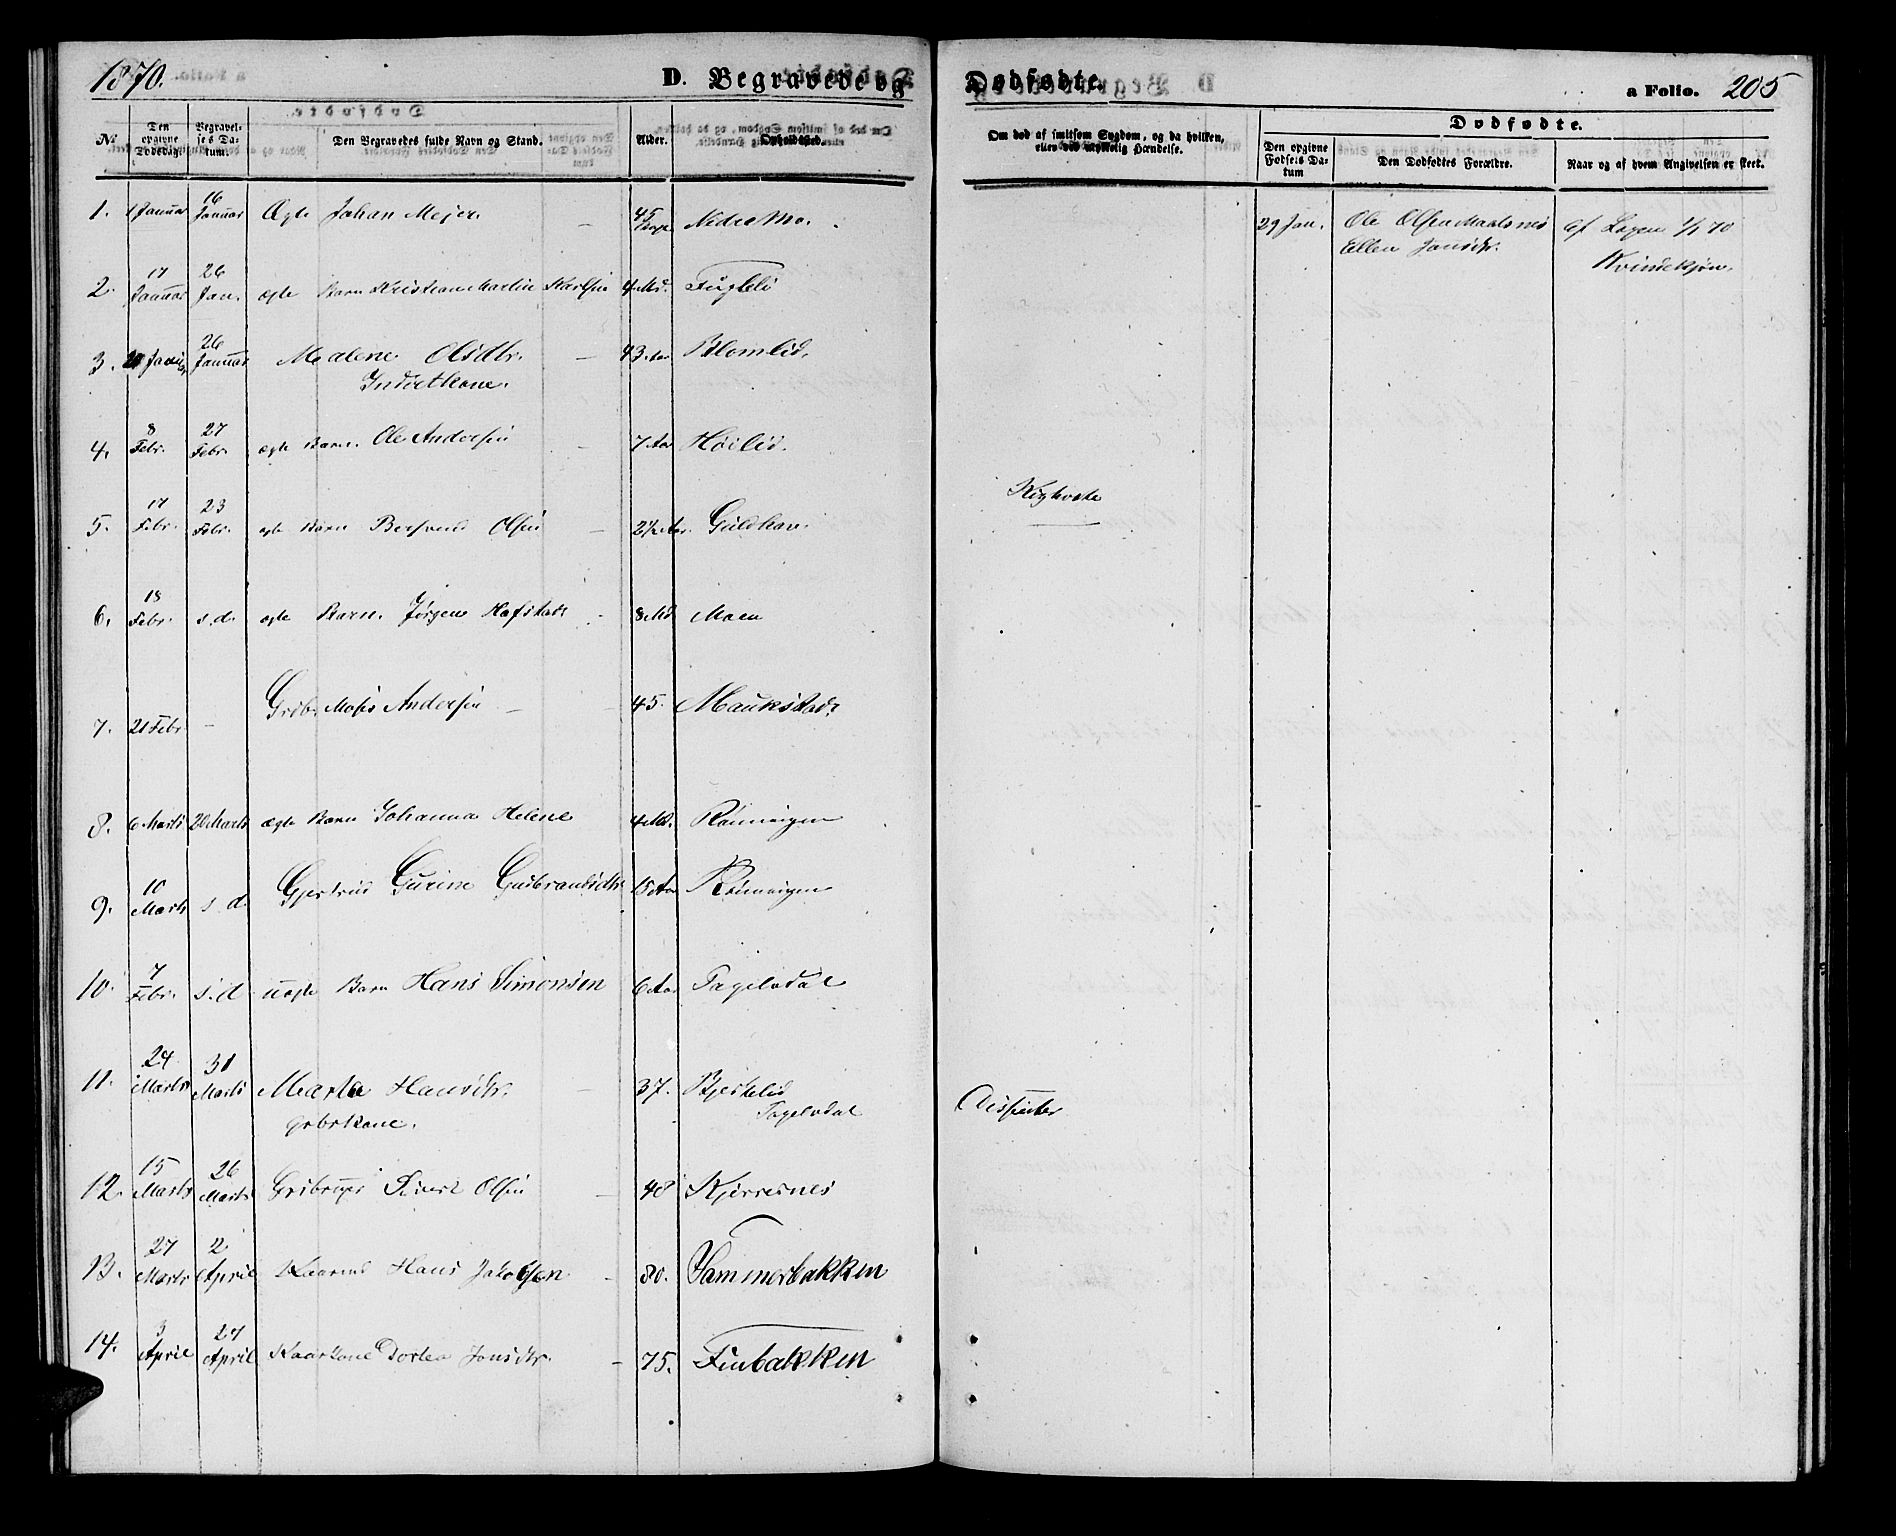 1870.
D. Begravede og Dødfødte.
a Folio. 205
No.
Den opgivne Dødsdag.
Begravelses Datum.
Den Begravedes fulde Navn og Stand.
Alder.
Opholdsted.
Om død af smitsom Sygdom, og da hvilken, eller ved ulykkelig Hændelse.
Dødfødte.
Den opgivne Fødsels Datum
Den Dødfødtes Forældre.
Naar og af hvem Angivelsen er skeet.
1. 1 Januar 16 Januar Johan Mejer 45 Nedre Mo.
29 Jan. Ole Olsen
Ellen Jonsdtr. Kvindekjøn.
2. 17 Januar 26 Jan. ægte Barn Kristian Martin Karlsen 4 Md. Fugleli
3. Januar 26 Januar Malene Olsdtr. 43 Aar Blomlid.
Inderstkone.
4. 8 Febr. 27 Febr. ægte Barn. Ole Andersen 7 Aar Høilid.
5. 17 Febr. 23 Febr. ægte Barn Bersvend Olsen 2½ Aar. Guldhav.
Kighoste
6. 18 Febr. s.d. ægte Barn. Jørgen Hafstad 8 Md Moen
7. 21 Febr. - Grdbr. Moses Andersen 45. Maukstad.
8. 6 Marts 20 Marts ægte Barn Johanna Helene 4 Md. Rønningen
9. 10 Marts s.d. Gjertrud Gurine Gudbrandsdtr 15 Aar Rønningen
10. 7 Febr. s.d. uægte Barn Hans Simonsen 6 Aar Tagelvdal
11. 24 Marts 31 Marts Marta Hansdtr. 37. Bjerkelid
gdbrkone. Tagelvdal
12. 15 Marts 26 Marts Grdbruger Sivert Olsen 48 Kjerresnes
13. 27 Marts 2 April Kaarmd Hans Jakobsen 80. Sammerbakken
14. 3 April 24 April Kaarkone Dortea Jonsdtr. 75. Finbakken